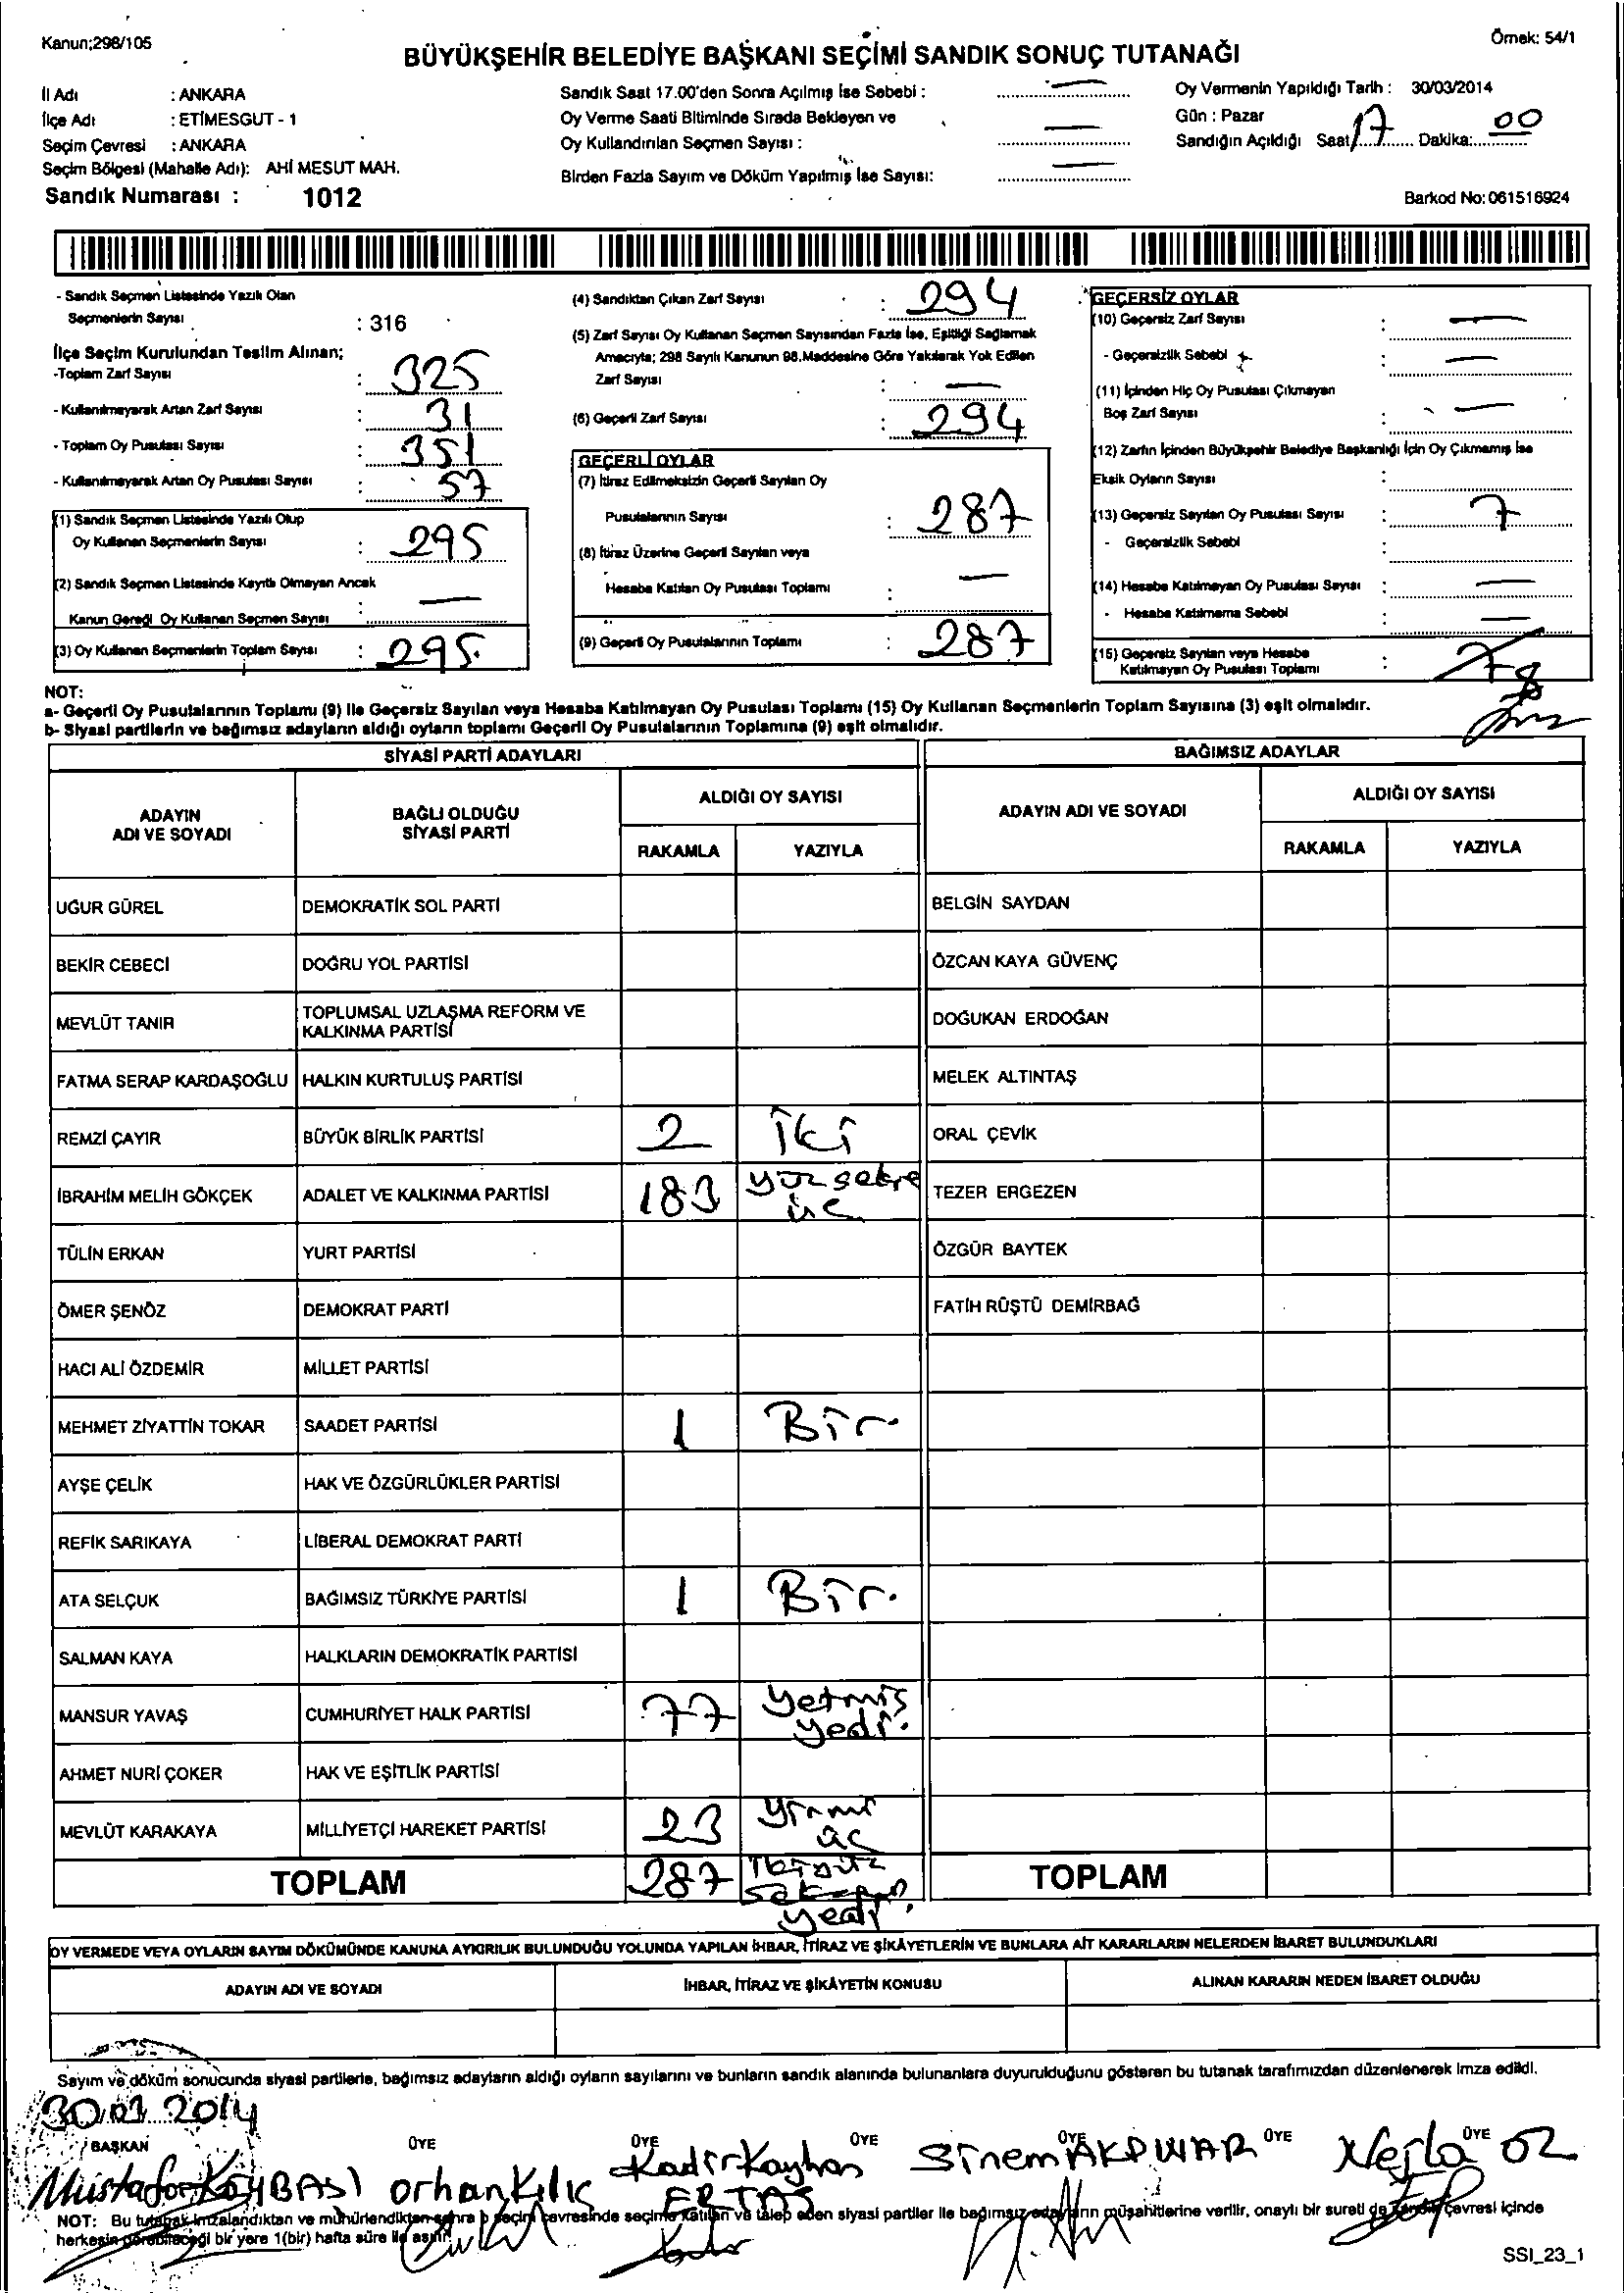 Kanun;298/105
Örnek: 54/1
BÜYÜKŞEHİR BELEDİYE BAŞKANI SEÇİMİ SANDIK SONUÇ TUTANAĞI
İl Adı : ANKARA
İlçe Adı : ETİMESGUT - 1
Seçim Çevresi : ANKARA
Seçim Bölgesi (Mahalle Adı): AHİ MESUT MAH.
Sandık Numarası : 1012
Sandık Saat 17.00'den Sonra Açılmış İse Sebebi : —
Oy Verme Saati Bitiminde Sırada Bekleyen ve
Oy Kullandırılan Seçmen Sayısı : —
Birden Fazla Sayım ve Döküm Yapılmış İse Sayısı: —
Oy Vermenin Yapıldığı Tarih : 30/03/2014
Gün : Pazar
Sandığın Açıldığı Saat 17 Dakika: 00
Barkod No: 061516924
- Sandık Seçmen Listesinde Yazılı Olan
Seçmenlerin Sayısı : 316
İlçe Seçim Kurulundan Teslim Alınan;
-Toplam Zarf Sayısı : 325
- Kullanılmayarak Artan Zarf Sayısı : 31
- Toplam Oy Pusulası Sayısı : 351
- Kullanılmayarak Artan Oy Pusulası Sayısı : 57
(1) Sandık Seçmen Listesinde Yazılı Olup
Oy Kullanan Seçmenlerin Sayısı : 295
(2) Sandık Seçmen Listesinde Kayıtlı Olmayan Ancak
Kanun Gereği Oy Kullanan Seçmen Sayısı : —
(3) Oy Kullanan Seçmenlerin Toplam Sayısı : 295
(4) Sandıktan Çıkan Zarf Sayısı : 294
(5) Zarf Sayısı Oy Kullanan Seçmen Sayısından Fazla İse, Eşitliği Sağlamak
Amacıyla; 298 Sayılı Kanunun 98.Maddesine Göre Yakılarak Yok Edilen
Zarf Sayısı : —
(6) Geçerli Zarf Sayısı : 294
GEÇERLİ OYLAR
(7) İtiraz Edilmeksizin Geçerli Sayılan Oy
Pusulalarının Sayısı : 287
(8) İtiraz Üzerine Geçerli Sayılan veya
Hesaba Katılan Oy Pusulası Toplamı : —
(9) Geçerli Oy Pusulalarının Toplamı : 287
GEÇERSİZ OYLAR
(10) Geçersiz Zarf Sayısı : —
- Geçersizlik Sebebi : —
(11) İçinden Hiç Oy Pusulası Çıkmayan
Boş Zarf Sayısı : —
(12) Zarfın İçinden Büyükşehir Belediye Başkanlığı İçin Oy Çıkmamış İse
Eksik Oyların Sayısı :
(13) Geçersiz Sayılan Oy Pusulası Sayısı : 7
- Geçersizlik Sebebi :
(14) Hesaba Katılmayan Oy Pusulası Sayısı : —
- Hesaba Katılmama Sebebi : —
(15) Geçersiz Sayılan veya Hesaba
Katılmayan Oy Pusulası Toplamı : 7 8
NOT:
a- Geçerli Oy Pusulalarının Toplamı (9) İle Geçersiz Sayılan veya Hesaba Katılmayan Oy Pusulası Toplamı (15) Oy Kullanan Seçmenlerin Toplam Sayısına (3) eşit olmalıdır.
b- Siyasi partilerin ve bağımsız adayların aldığı oyların toplamı Geçerli Oy Pusulalarının Toplamına (9) eşit olmalıdır.
SİYASİ PARTİ ADAYLARI
BAĞIMSIZ ADAYLAR
ADAYIN ADI VE SOYADI
BAĞLI OLDUĞU SİYASİ PARTİ
ALDIĞI OY SAYISI
ADAYIN ADI VE SOYADI
ALDIĞI OY SAYISI
RAKAMLA YAZIYLA
RAKAMLA YAZIYLA
UĞUR GÜREL DEMOKRATİK SOL PARTİ BELGİN SAYDAN
BEKİR CEBECİ DOĞRU YOL PARTİSİ ÖZCAN KAYA GÜVENÇ
MEVLÜT TANIR TOPLUMSAL UZLAŞMA REFORM VE KALKINMA PARTİSİ DOĞUKAN ERDOĞAN
FATMA SERAP KARDAŞOĞLU HALKIN KURTULUŞ PARTİSİ MELEK ALTINTAŞ
REMZİ ÇAYIR BÜYÜK BİRLİK PARTİSİ 2 İki ORAL ÇEVİK
İBRAHİM MELİH GÖKÇEK ADALET VE KALKINMA PARTİSİ 183 yüz üç TEZER ERGEZEN
TÜLİN ERKAN YURT PARTİSİ ÖZGÜR BAYTEK
ÖMER ŞENÖZ DEMOKRAT PARTİ FATİH RÜŞTÜ DEMİRBAĞ
HACI ALİ ÖZDEMİR MİLLET PARTİSİ
MEHMET ZİYATTİN TOKAR SAADET PARTİSİ 1 Bir.
AYŞE ÇELİK HAK VE ÖZGÜRLÜKLER PARTİSİ
REFİK SARIKAYA LİBERAL DEMOKRAT PARTİ
ATA SELÇUK BAĞIMSIZ TÜRKİYE PARTİSİ 1 Bir.
SALMAN KAYA HALKLARIN DEMOKRATİK PARTİSİ
MANSUR YAVAŞ CUMHURİYET HALK PARTİSİ 77 yetmiş yedi.
AHMET NURİ ÇOKER HAK VE EŞİTLİK PARTİSİ
MEVLÜT KARAKAYA MİLLİYETÇİ HAREKET PARTİSİ 23 yirmi üç
TOPLAM 287 ikiyüz seksen yedi. TOPLAM
OY VERMEDE VEYA OYLARIN SAYIM DÖKÜMÜNDE KANUNA AYKIRILIK BULUNDUĞU YOLUNDA YAPILAN İHBAR, İTİRAZ VE ŞİKÂYETLERİN VE BUNLARA AİT KARARLARIN NELERDEN İBARET BULUNDUKLARI
ADAYIN ADI VE SOYADI İHBAR, İTİRAZ VE ŞİKÂYETİN KONUSU ALINAN KARARIN NEDEN İBARET OLDUĞU
Sayım ve döküm sonucunda siyasi partilerle, bağımsız adayların aldığı oyların sayılarını ve bunların sandık alanında bulunanlara duyurulduğunu gösteren bu tutanak tarafımızdan düzenlenerek imza edildi.
30.03.2014
BAŞKAN ÜYE ÜYE ÜYE ÜYE ÜYE ÜYE
Mustafa KÖYBAŞI Orhan Kılıç Kadir Kayhan ERTAŞ Sinem AKPINAR Nejla ÖZ
NOT: Bu tutanak imzalandıktan ve mühürlendikten sonra o seçim çevresinde seçime katılan ve talep eden siyasi partiler ile bağımsız adayların müşahitlerine verilir, onaylı bir sureti de sandık çevresi içinde
herkesin görebileceği bir yere 1(bir) hafta süre ile asılır.
SSI_23_1